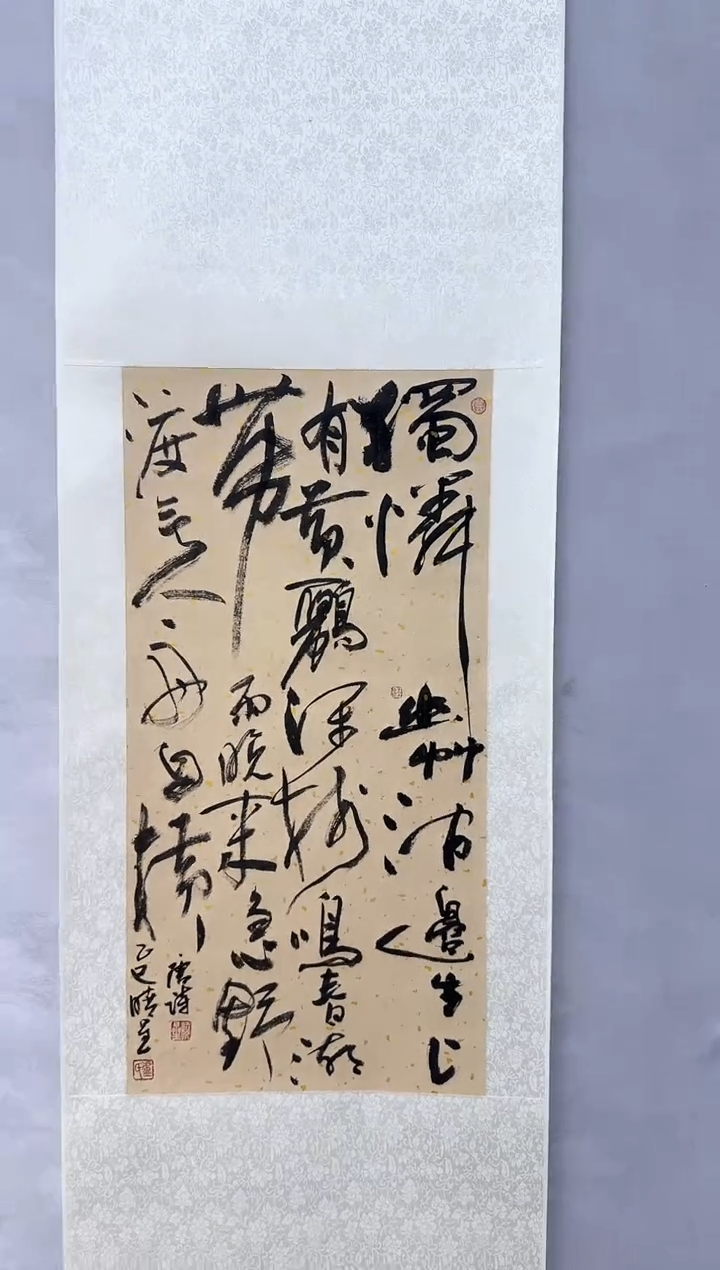 獨憐幽艸澗邊生上
有黃鸝深樹鳴春潮
帶雨晚來急野
渡無人舟自橫
唐詩
乙巳